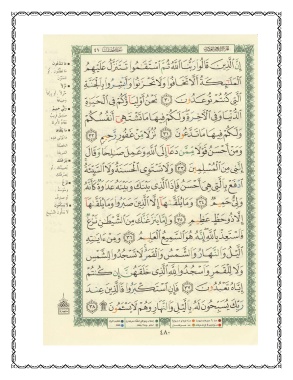 إِنَّ ٱلَّذِينَ قَالُوا۟ رَبُّنَا ٱللَّهُ ثُمَّ ٱسْتَقَٰمُوا۟ تَتَنَزَّلُ عَلَيْهِمُ
ٱلْمَلَٰٓئِكَةُ أَلَّا تَخَافُوا۟ وَلَا تَحْزَنُوا۟ وَأَبْشِرُوا۟ بِٱلْجَنَّةِ
ٱلَّتِى كُنتُمْ تُوعَدُونَ ٣٠ نَحْنُ أَوْلِيَآؤُكُمْ فِى ٱلْحَيَوٰةِ
ٱلدُّنْيَا وَفِى ٱلْءَاخِرَةِ وَلَكُمْ فِيهَا مَا تَشْتَهِىٓ أَنفُسُكُمْ
وَلَكُمْ فِيهَا مَا تَدَّعُونَ ٣١ نُزُلًا مِّنْ غَفُورٍ رَّحِيمٍ ٣٢
وَمَنْ أَحْسَنُ قَوْلًا مِّمَّن دَعَآ إِلَى ٱللَّهِ وَعَمِلَ صَٰلِحًا وَقَالَ
إِنَّنِى مِنَ ٱلْمُسْلِمِينَ ٣٣ وَلَا تَسْتَوِى ٱلْحَسَنَةُ وَلَا ٱلسَّيِّئَةُ
ٱدْفَعْ بِٱلَّتِى هِىَ أَحْسَنُ فَإِذَا ٱلَّذِى بَيْنَكَ وَبَيْنَهُۥ عَدَٰوَةٌ كَأَنَّهُۥ
وَلِىٌّ حَمِيمٌ ٣٤ وَمَا يُلَقَّىٰهَآ إِلَّا ٱلَّذِينَ صَبَرُوا۟ وَمَا يُلَقَّىٰهَآ
إِلَّا ذُو حَظٍّ عَظِيمٍ ٣٥ وَإِمَّا يَنزَغَنَّكَ مِنَ ٱلشَّيْطَٰنِ نَزْغٌ
فَٱسْتَعِذْ بِٱللَّهِ إِنَّهُۥ هُوَ ٱلسَّمِيعُ ٱلْعَلِيمُ ٣٦ وَمِنْ ءَايَٰتِهِ
ٱلَّيْلُ وَٱلنَّهَارُ وَٱلشَّمْسُ وَٱلْقَمَرُ لَا تَسْجُدُوا۟ لِلشَّمْسِ
وَلَا لِلْقَمَرِ وَٱسْجُدُوا۟ لِلَّهِ ٱلَّذِى خَلَقَهُنَّ إِن كُنتُمْ
إِيَّاهُ تَعْبُدُونَ ٣٧ فَإِنِ ٱسْتَكْبَرُوا۟ فَٱلَّذِينَ عِندَ
رَبِّكَ يُسَبِّحُونَ لَهُۥ بِٱلَّيْلِ وَٱلنَّهَارِ وَهُمْ لَا يَسْـَٔمُونَ ٣٨
٤٨٠